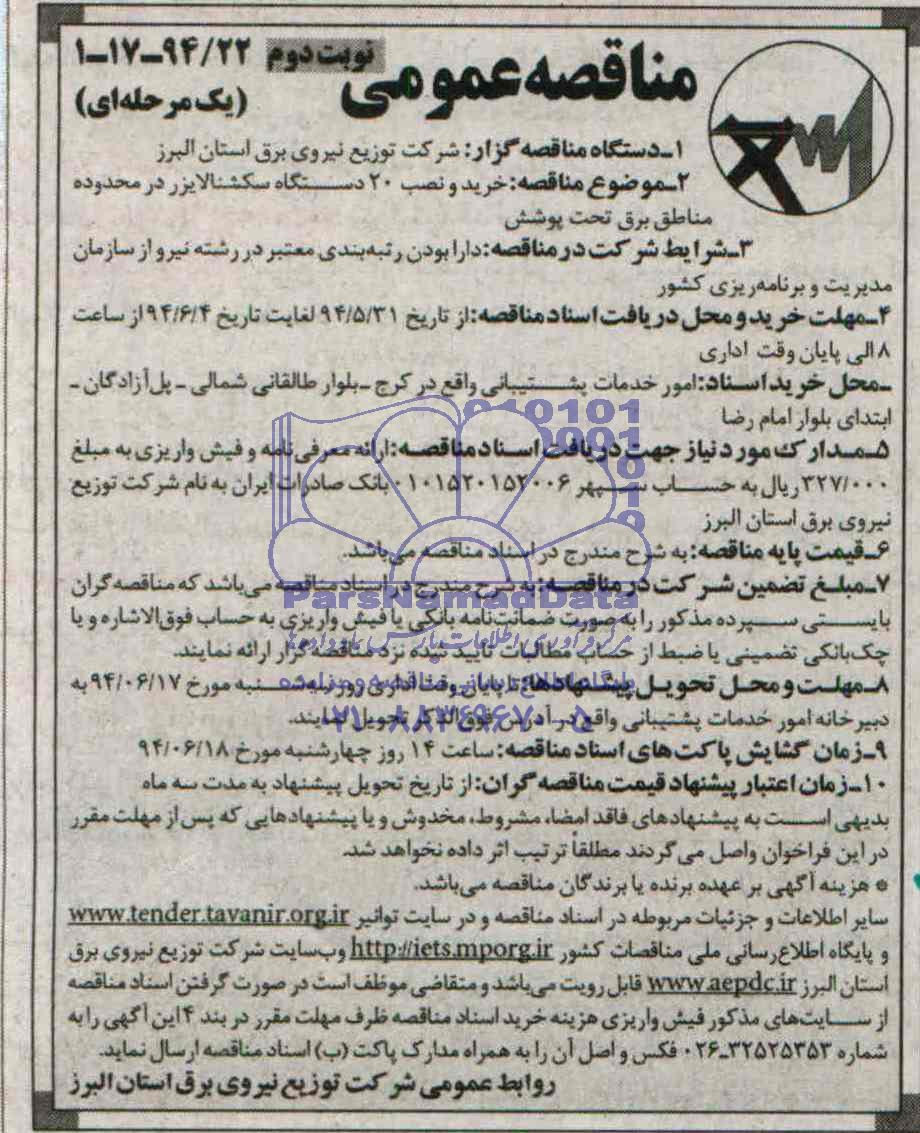 مناقصه عمومی
نوبت دوم ۹۴/۲۲-۱۷-۱
(یک مرحله‌ای)
۱-دستگاه مناقصه گزار: شرکت توزیع نیروی برق استان البرز
۲-موضوع مناقصه: خرید و نصب ۲۰ دستگاه سکشنالایزر در محدوده
مناطق برق تحت پوشش
۳-شرایط شرکت در مناقصه: دارا بودن رتبه‌بندی معتبر در رشته نیرو از سازمان
مدیریت و برنامه‌ریزی کشور
۴-مهلت خرید و محل دریافت اسناد مناقصه: از تاریخ ۹۴/۵/۳۱ لغایت تاریخ ۹۴/۶/۴ از ساعت
۸ الی پایان وقت اداری
-محل خرید اسناد: امور خدمات پشتیبانی واقع در کرج -بلوار طالقانی شمالی - پل آزادگان -
ابتدای بلوار امام رضا
۵-مدارک مورد نیاز جهت دریافت اسناد مناقصه: ارائه معرفی نامه و فیش واریزی به مبلغ
۳۲۷/۰۰۰ ریال به حساب سپهر ۰۱۰۱۵۲۰۱۵۲۰۰۶ بانک صادرات ایران به نام شرکت توزیع
نیروی برق استان البرز
۶-قیمت پایه مناقصه: به شرح مندرج در اسناد مناقصه می‌باشد.
۷-مبلغ تضمین شرکت در مناقصه: به شرح مندرج در اسناد مناقصه می‌باشد که مناقصه گران
بایستی سپرده مذکور را به صورت ضمانت‌نامه بانکی یا فیش واریزی به حساب فوق‌الاشاره و یا
چک بانکی تضمینی یا ضبط از حساب مطالبات تایید شده نزد مناقصه گزار ارائه نمایند.
۸-مهلت و محل تحویل پیشنهادها: تا پایان وقت اداری روز سه‌شنبه مورخ ۹۴/۰۶/۱۷ به
دبیرخانه امور خدمات پشتیبانی واقع در آدرس فوق‌الذکر تحویل نمایند.
۹-زمان گشایش پاکت های اسناد مناقصه: ساعت ۱۴ روز چهارشنبه مورخ ۹۴/۰۶/۱۸
۱۰-زمان اعتبار پیشنهاد قیمت مناقصه گران: از تاریخ تحویل پیشنهاد به مدت سه ماه
بدیهی است به پیشنهادهای فاقد امضا، مشروط، مخدوش و یا پیشنهادهایی که پس از مهلت مقرر
در این فراخوان واصل می گردند مطلقاً ترتیب اثر داده نخواهد شد.
* هزینه آگهی بر عهده برنده یا برندگان مناقصه می‌باشد.
سایر اطلاعات و جزئیات مربوطه در اسناد مناقصه و در سایت توانیر www.tender.tavanir.org.ir
و پایگاه اطلاع‌رسانی ملی مناقصات کشور http://iets.mporg.ir وب‌سایت شرکت توزیع نیروی برق
استان البرز www.aepdc.ir قابل رویت می‌باشد و متقاضی موظف است در صورت گرفتن اسناد مناقصه
از سایت‌های مذکور فیش واریزی هزینه خرید اسناد مناقصه ظرف مهلت مقرر در بند ۴ این آگهی را به
شماره ۳۲۵۲۵۳۵۳-۰۲۶ فکس و اصل آن را به همراه مدارک پاکت (ب) اسناد مناقصه ارسال نماید.
روابط عمومی شرکت توزیع نیروی برق استان البرز
ParsNamadData
۰۲۱-۸۸۳۴۹۶۷۰-۵